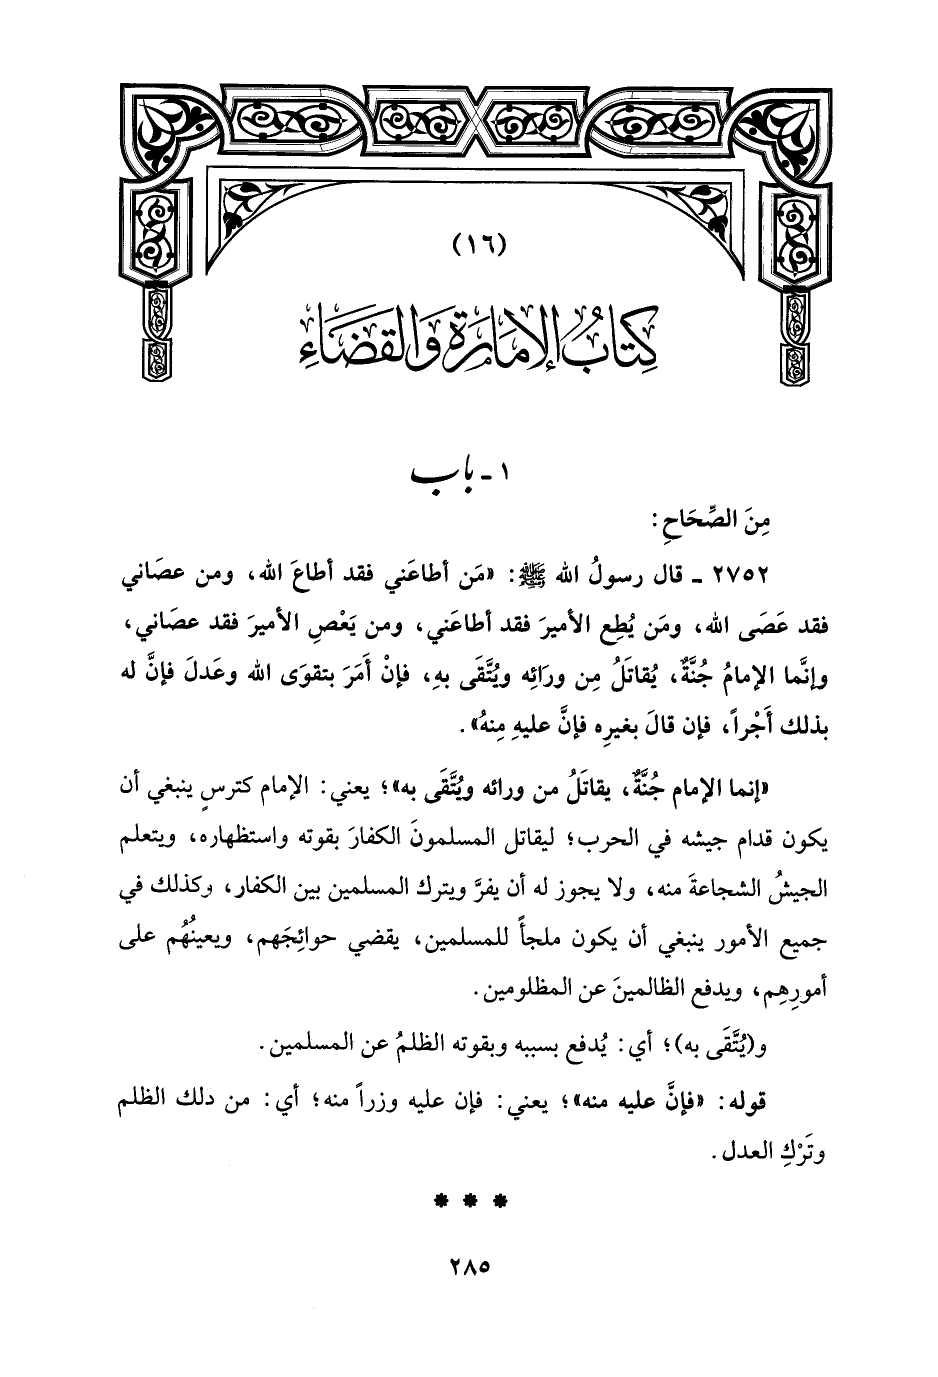 (١٦)
كِتَابُ الإمَارَة وَالقَضَاءِ
١ - باب
مِنَ الصِّحَاحِ:
٢٧٥٢ - قال رسولُ الله ﷺ: «مَن أطاعَني فقد أطاعَ الله، ومن عصَاني
فقد عَصَى الله، ومَن يُطِع الأميرَ فقد أطاعَني، ومن يَعْصِ الأميرَ فقد عصاني،
وإنَّما الإمامُ جُنَّةٌ، يُقاتَلُ مِن ورَائِه ويُتَّقَى بهِ، فإنْ أَمَرَ بتقوَى الله وعَدلَ فإنَّ له
بذلك أَجْراً، فإن قالَ بغيرِه فإنَّ عليهِ مِنهُ».
«إنما الإمام جُنَّةٌ، يقاتَلُ من ورائه ويُتَّقَى به»؛ يعني: الإمام كترسٍ ينبغي أن
يكون قدام جيشه في الحرب؛ ليقاتل المسلمونَ الكفارَ بقوته واستظهاره، ويتعلم
الجيشُ الشجاعةَ منه، ولا يجوز له أن يفرَّ ويترك المسلمين بين الكفار، وكذلك في
جميع الأمور ينبغي أن يكون ملجأً للمسلمين، يقضي حوائِجَهم، ويعينُهُم على
أمورِهِم، ويدفع الظالمينَ عن المظلومين.
و(يُتَّقَى به)؛ أي: يُدفع بسببه وبقوته الظلمُ عن المسلمين.
قوله: «فإنَّ عليه منه»؛ يعني: فإن عليه وزراً منه؛ أي: من دلك الظلم
وتَرْكِ العدل.
* * *
٢٨٥